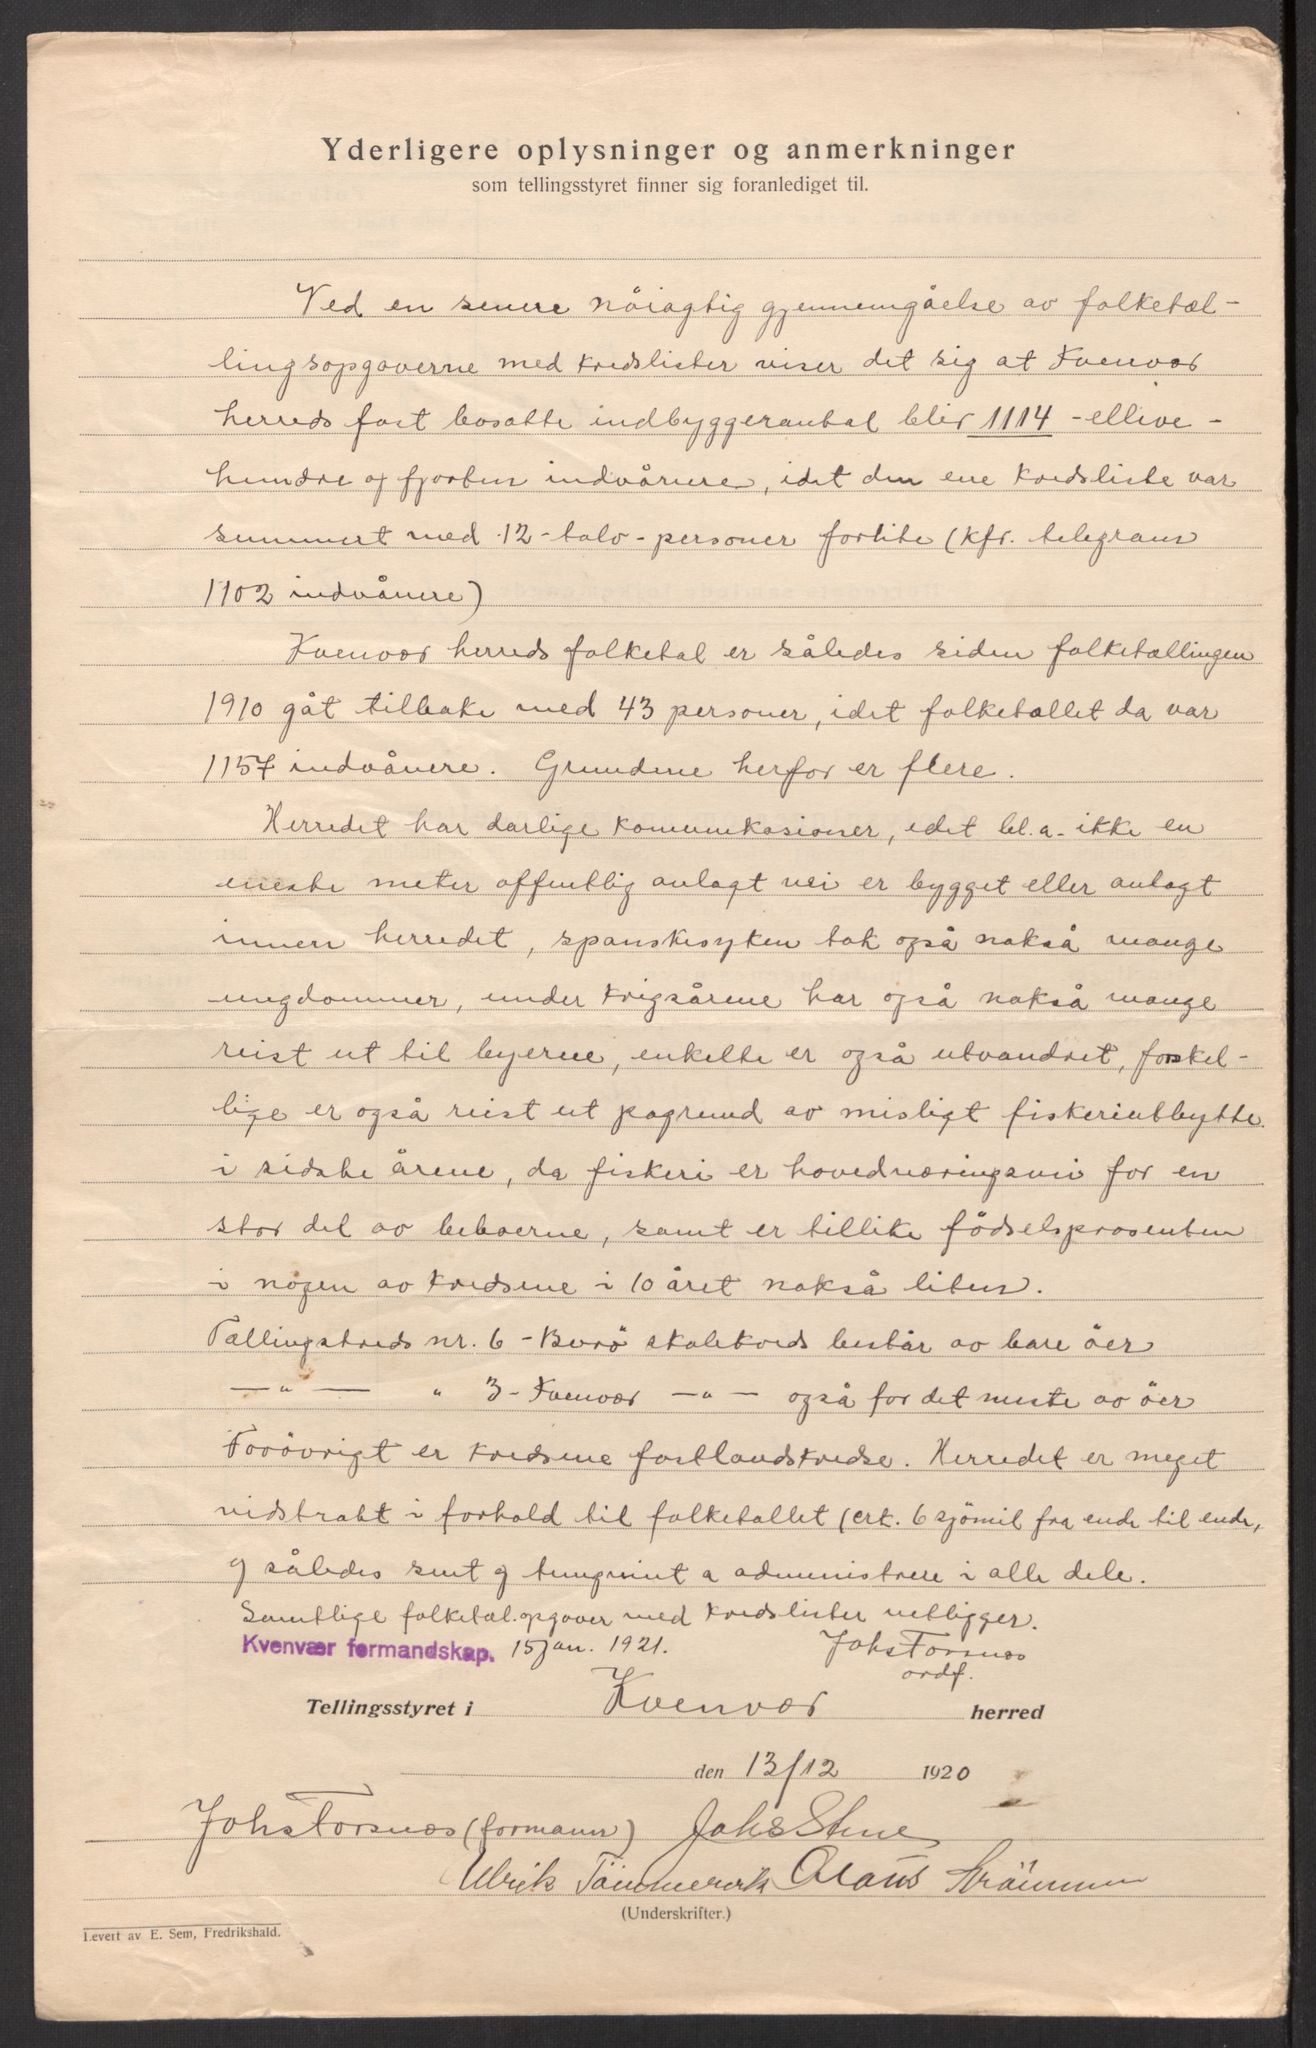 Yderligere oplysninger og anmerkninger
som tellingsstyret finner sig foranlediget til.
Ved en senere nöiagtig gjennemgåelse av folketæl-
lingsopgaverne med kredslister viser det sig at Kvenvær
herreds fast bosatte indbyggerantal blir 1114 - ellive-
hundre og fjorten indvånere, idet den ene kredsliste var
summert med 12 - tolv - personer forlite (kfr. telegram
1102 indvånere)
Kvenvær herreds folketal er således siden folketællingen
1910 gåt tilbake med 43 personer, idet folketallet da var
1157 indvånere. Grundene herfor er flere.
Herredet har darlige komunikasioner, idet bl.a. ikke en
eneste meter offentlig anlagt vei er bygget eller anlagt
innen herredet, spanskesyken tok også nokså mange
ungdommer, under krigsårene har også nokså mange
reist ut til byerne, enkelte er også utvandret, forskel-
lige er også reist ut pagrund av misligt fiskeriutbytte
i sidste årene, da fiskeri er hovednæringsvei for en
stor del av beboerne, samt er tillike födselsprosenten
i nogen av kredsene i 10 året nokså liten.
Tællingskreds nr. 6 - Burö skolekreds består av bare öer
— " — " 3 - Kvenvær — " — også for det meste av öer
Forövrigt er kredsene fastlandskredse. Herredet er meget
vidstrakt i forhold til folketallet (crk. 6 sjömil fra ende til ende,
og således sent og tungvint a administrere i alle dele.
Samtlige folketæl.opgaver med kredslister vetligger.
Kvenvær formandskap. 15 jan. 1921. Johs Torsnes
ordf.
Tellingsstyret i Kvenvær herred
den 13/12 1920
Johs Torsnes (formann) Johs Stene
Ulrik Tömmervik Olaus Strömmen
(Underskrifter.)
Levert av E. Sem, Fredrikshald.